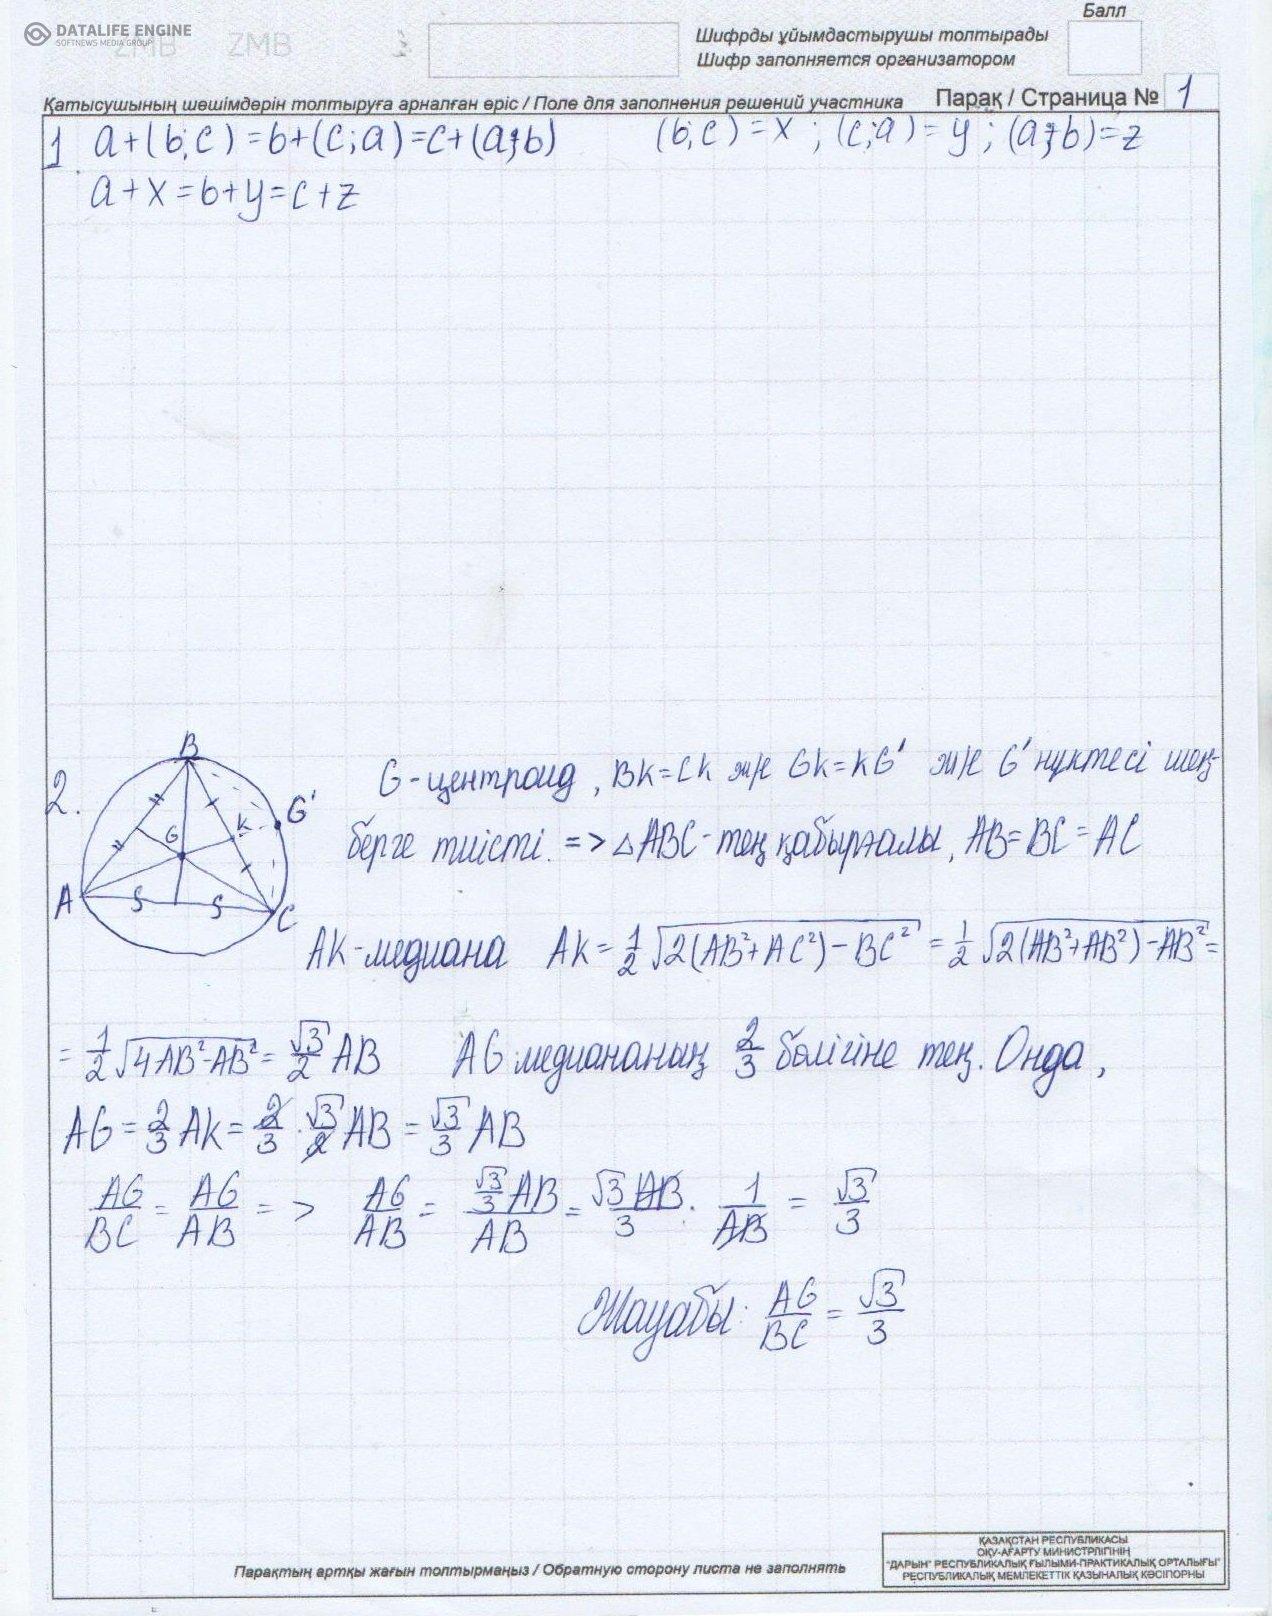 DATALIFE ENGINE
SOFTNEWS MEDIA GROUP
ZMB ZMB
Балл
Шифрды ұйымдастырушы толтырады
Шифр заполняется организатором
Қатысушының шешімдерін толтыруға арналған өріс / Поле для заполнения решений участника Парақ / Страница № 1
1. a+(b;c)=b+(c;a)=c+(a;b) (b;c)=x ; (c;a)=y ; (a;b)=z
a+x=b+y=c+z
2.
B
G'
K
G
A
C
G-центроид, BK=CK ж/е GK=KG' ж/е G' нүктесі шең-
берге тиісті. => △ABC-тең қабырғалы, AB=BC=AC
AK-медиана AK=1/2 √(2(AB²+AC²)-BC²) = 1/2 √(2(AB²+AB²)-AB²) =
= 1/2 √(4AB²-AB²) = √3/2 AB AG медиананың 2/3 бөлігіне тең. Онда,
AG = 2/3 AK = 2/3 · √3/2 AB = √3/3 AB
AG/BC = AG/AB => AG/AB = (√3/3 AB)/AB = √3 AB/3 · 1/AB = √3/3
Жауабы: AG/BC = √3/3
Парақтың артқы жағын толтырмаңыз / Обратную сторону листа не заполнять
ҚАЗАҚСТАН РЕСПУБЛИКАСЫ
ОҚУ-АҒАРТУ МИНИСТРЛІГІНІҢ
"ДАРЫН" РЕСПУБЛИКАЛЫҚ ҒЫЛЫМИ-ПРАКТИКАЛЫҚ ОРТАЛЫҒЫ"
РЕСПУБЛИКАЛЫҚ МЕМЛЕКЕТТІК ҚАЗЫНАЛЫҚ КӘСІПОРНЫ